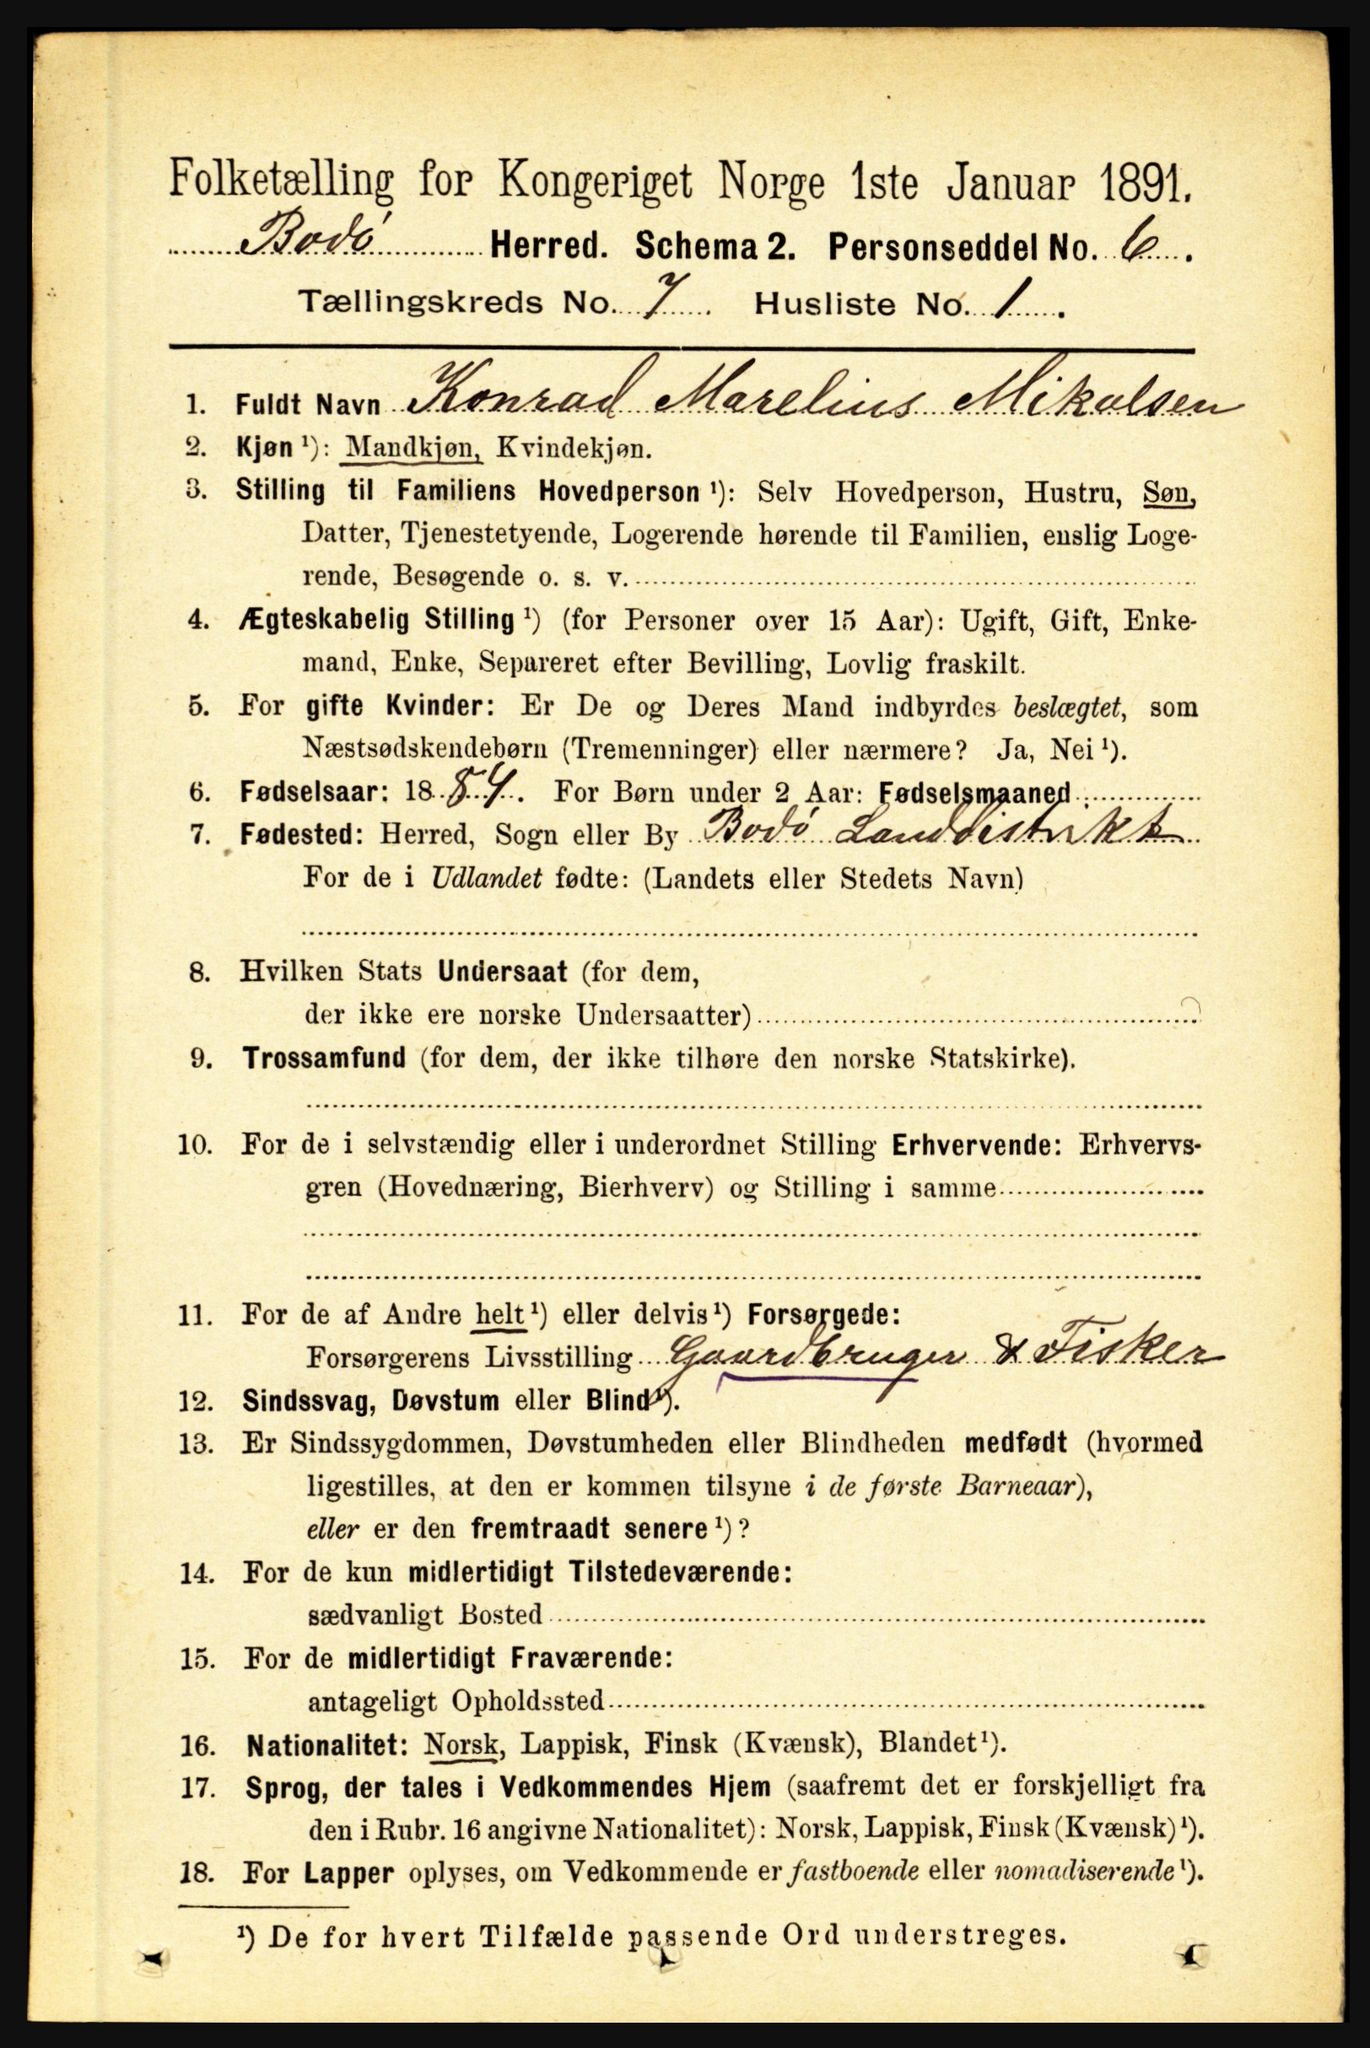 Folketælling for Kongeriget Norge 1ste Januar 1891.
Bodö Herred. Schema 2. Personseddel No. 6.
Tællingskreds No. 7. Husliste No. 1.
1. Fuldt Navn Konrad Marelius Mikalsen
2. Kjøn ¹): Mandkjøn, Kvindekjøn.
3. Stilling til Familiens Hovedperson ¹): Selv Hovedperson, Hustru, Søn,
Datter, Tjenestetyende, Logerende hørende til Familien, enslig Loge-
rende, Besøgende o. s. v.
4. Ægteskabelig Stilling ¹) (for Personer over 15 Aar): Ugift, Gift, Enke-
mand, Enke, Separeret efter Bevilling, Lovlig fraskilt.
5. For gifte Kvinder: Er De og Deres Mand indbyrdes beslægtet, som
Næstsødskendebørn (Tremenninger) eller nærmere? Ja, Nei ¹).
6. Fødselsaar: 1884. For Børn under 2 Aar: Fødselsmaaned
7. Fødested: Herred, Sogn eller By Bodö Landdistrikt
For de i Udlandet fødte: (Landets eller Stedets Navn)
8. Hvilken Stats Undersaat (for dem,
der ikke ere norske Undersaatter)
9. Trossamfund (for dem, der ikke tilhøre den norske Statskirke).
10. For de i selvstændig eller i underordnet Stilling Erhvervende: Erhvervs-
gren (Hovednæring, Bierhverv) og Stilling i samme
11. For de af Andre helt ¹) eller delvis ¹) Forsørgede:
Forsørgerens Livsstilling Gaardbruger & Fisker
12. Sindssvag, Døvstum eller Blind ¹).
13. Er Sindssygdommen, Døvstumheden eller Blindheden medfødt (hvormed
ligestilles, at den er kommen tilsyne i de første Barneaar),
eller er den fremtraadt senere ¹)?
14. For de kun midlertidigt Tilstedeværende:
sædvanligt Bosted
15. For de midlertidigt Fraværende:
antageligt Opholdssted
16. Nationalitet: Norsk, Lappisk, Finsk (Kvænsk), Blandet ¹).
17. Sprog, der tales i Vedkommendes Hjem (saafremt det er forskjelligt fra
den i Rubr. 16 angivne Nationalitet): Norsk, Lappisk, Finsk (Kvænsk) ¹).
18. For Lapper oplyses, om Vedkommende er fastboende eller nomadiserende ¹).
¹) De for hvert Tilfælde passende Ord understreges.